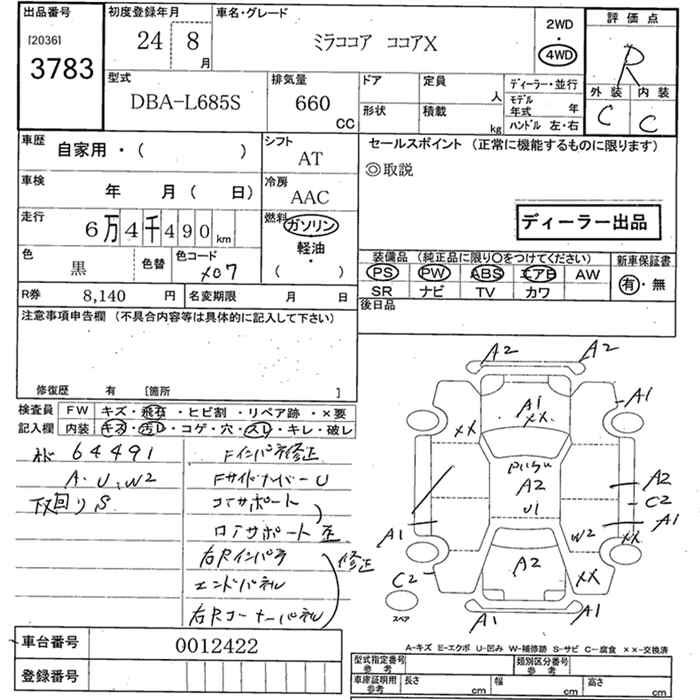 出品番号
[2036]
3783
初度登録年月
24 8
月
車名・グレード
ミラココア ココアX
2WD
・
4WD
評価点
R
外装 内装
C C
型式
DBA-L685S
排気量
660
CC
ドア
形状
定員
人
積載
kg
ディーラー・並行
モデル年式 年
ハンドル 左・右
車歴
自家用・( )
シフト
AT
車検
年 月( 日)
冷房
AAC
走行
6万4千490km
燃料
ガソリン
軽油
・
( )
色
黒
色替
色コード
X07
R券 8,140 円
名変期限 月 日
セールスポイント (正常に機能するものに限ります)
◎取説
ディーラー出品
装備品 (純正品に限り○をつけてください)
PS PW ABS エアB AW
SR ナビ TV カワ
新車保証書
有・無
後日品
注意事項申告欄 (不具合内容等は具体的に記入して下さい)
修復歴 有 [箇所 ]
検査員
記入欄
FW キズ・飛石・ヒビ割・リペア跡・×要
内装 キズ・汚レ・コゲ・穴・スレ・キレ・破レ
64491
A.U.W2
下回りS
Fインパネ修正
FサイドメンバーU
コアサポート
ロアサポート 歪
右Rインパネ
エンドパネル
右Rコーナーパネル
修正
A2 A2
A1
XX
XX
A1
A2
U1
A2
C2
A1
A1
W2
XX
A2
XX
C2
スペア
A1 A1
A-キズ E-エクボ U-凹み W-補修跡 S-サビ C-腐食 ××-交換済
車台番号 0012422
登録番号
型式指定番号
参考
類別区分番号
参考
車庫証明用
参考
長さ cm
幅 cm
高さ cm